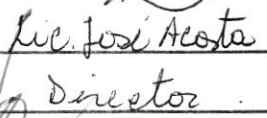 Lic. José Acosta
Director.